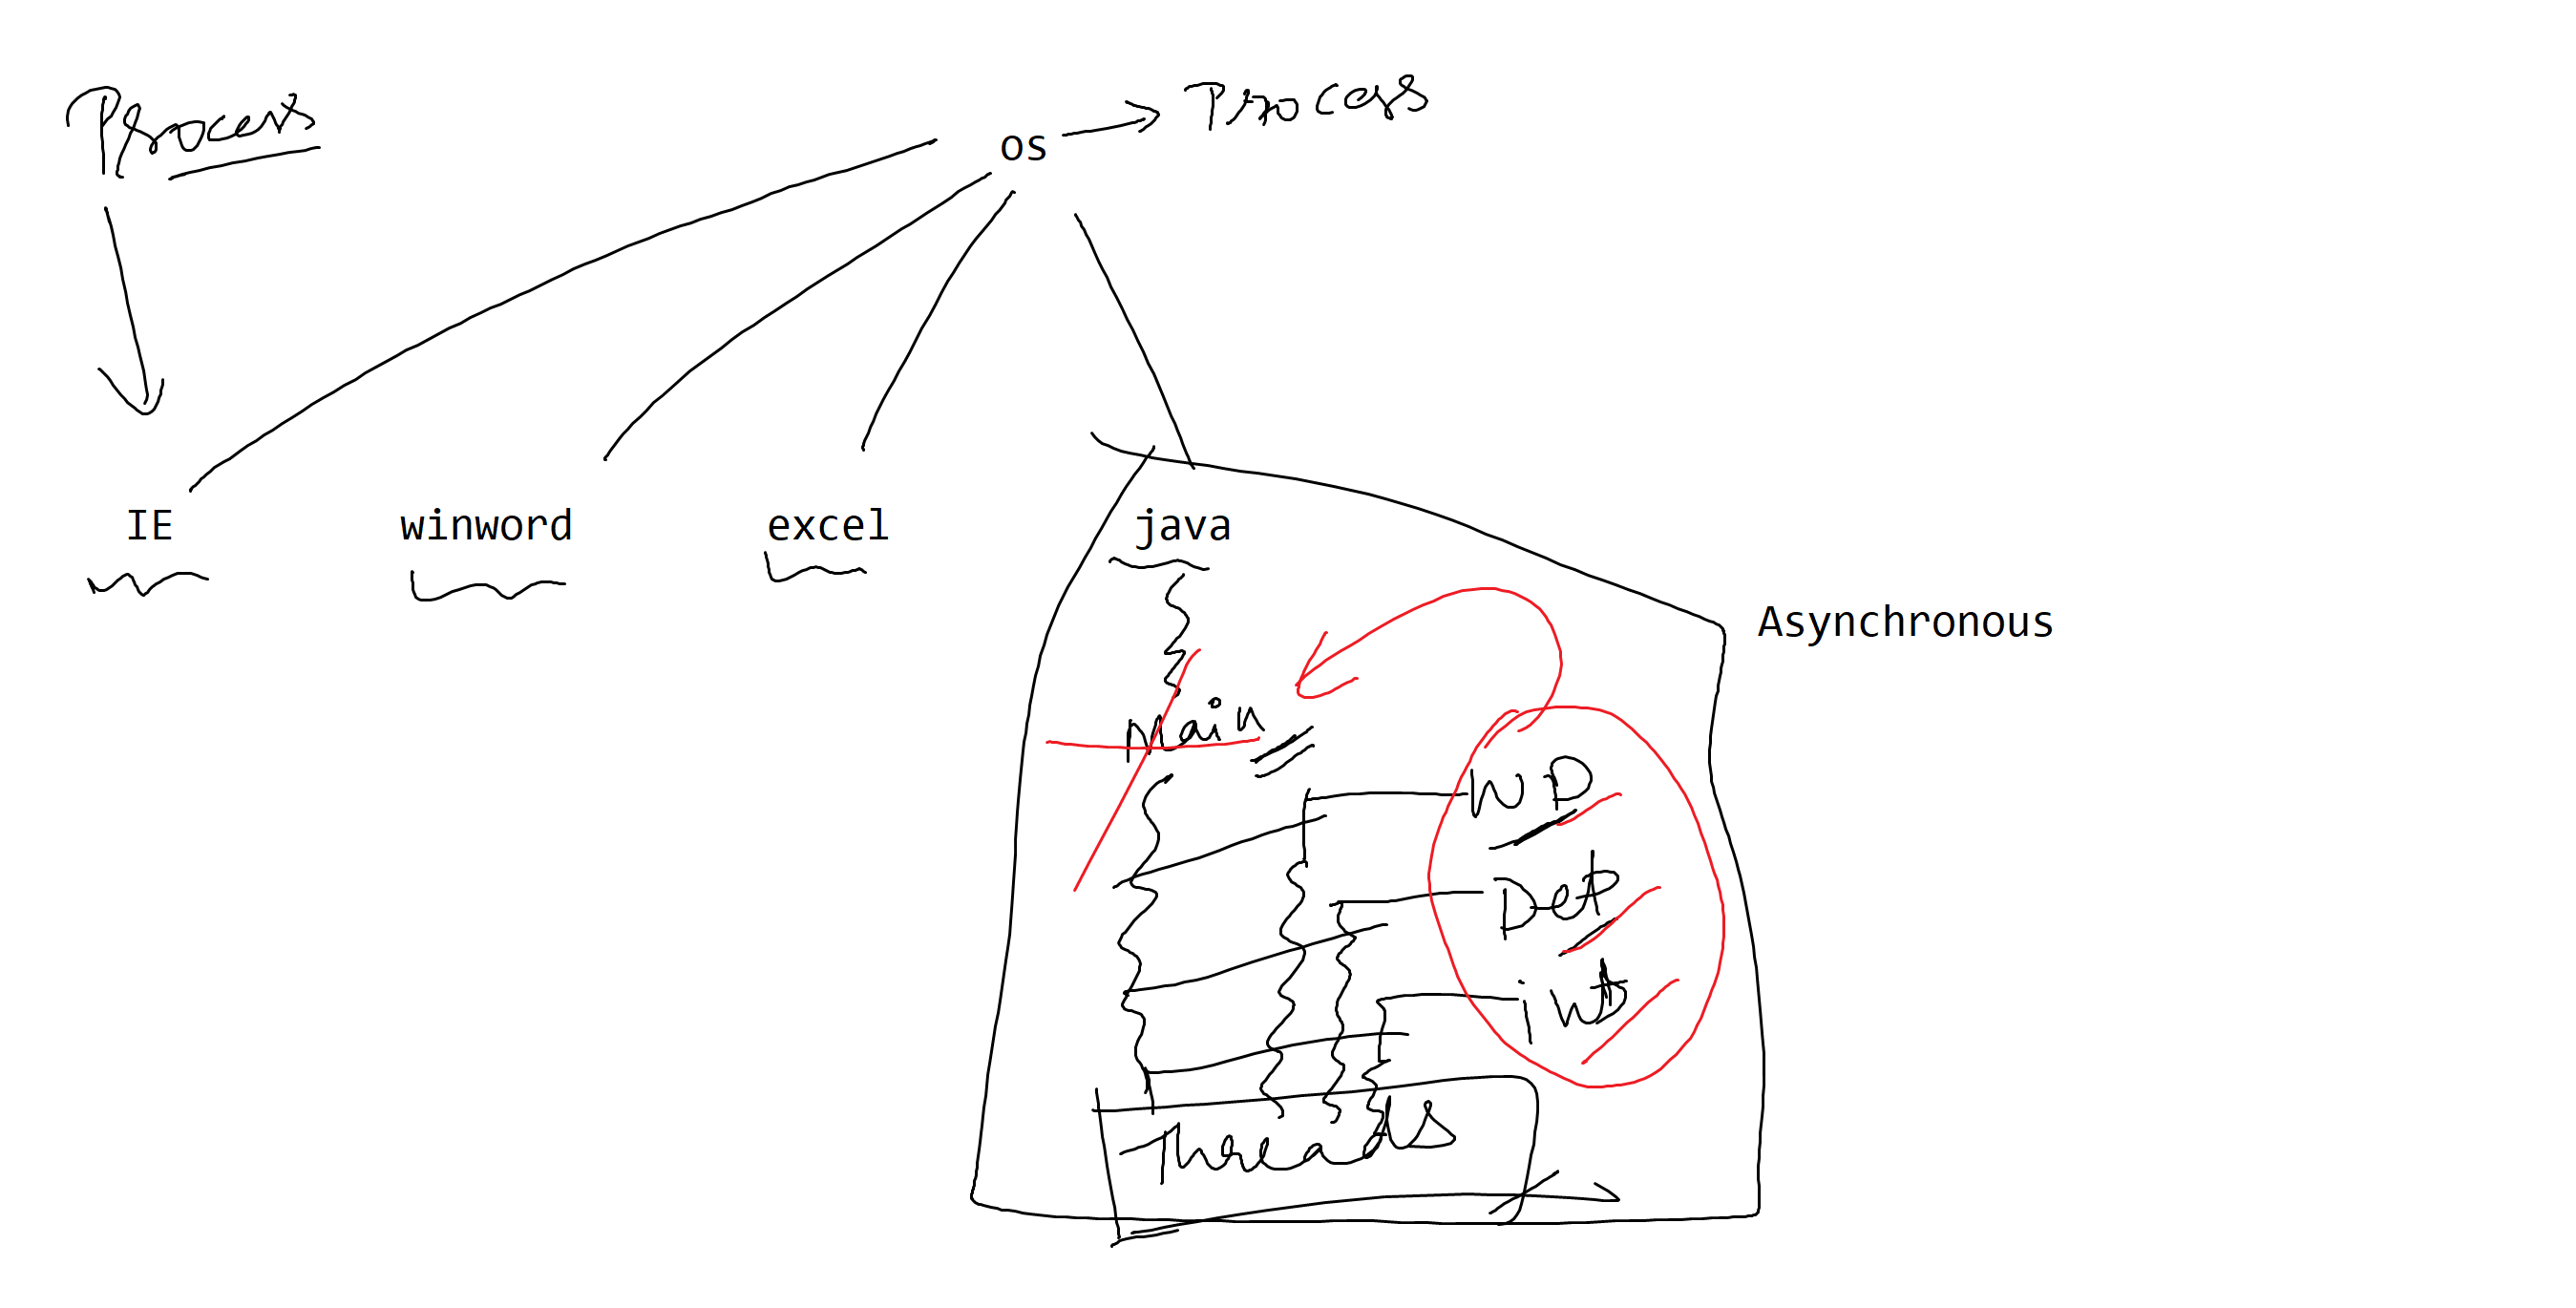 Process
os
Process
IE
winword
excel
java
Asynchronous
Main
WD
Dep
Threads